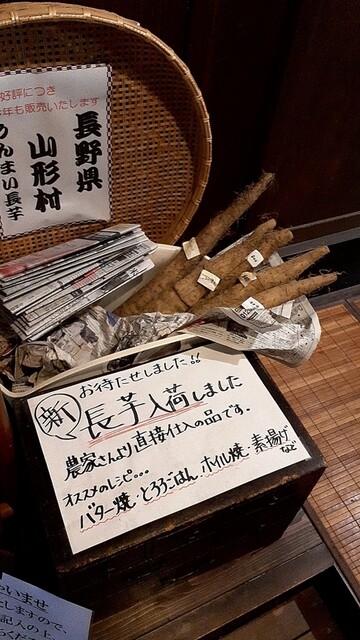 好評につき
年も販売いたします
長野県
山形村
んまい長芋
お待たせしました!!
新
長芋入荷しました
農家さんより直接仕入の品です.
オススメのレシピ...
バター焼・とろろごはん・ホイル焼・素揚げ
など
いませ
たしますので、
記入の上、